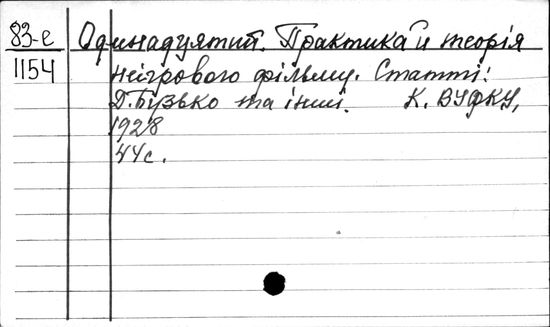 83-е Одинадцятий. Практика и теорія
1154 неігрового фільму. Статті:
Д. Бузько та інші. К. ВУФКУ,
1928
44с.